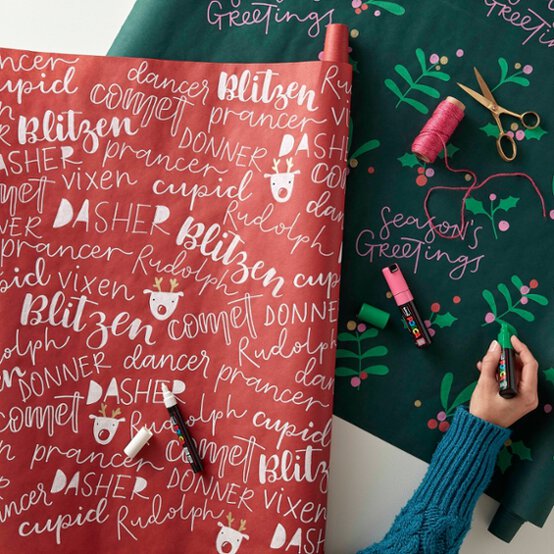 dancer Blitzen Ru
cupid comet prancer
Blitzen DONNER DASH
DASHER prancer
comet vixen cupid
DASHER Rudolph
Blitzen
prancer Rudolph cup
cupid vixen
Blitzen comet
Rudolph dancer Rudolph
DONNER DASHER prancer
comet Rudolph cupid
prancer comet Blitz
DASHER DONNER vixen
cupid Rudolph
Greetings
Season's
Greetings
POSCA